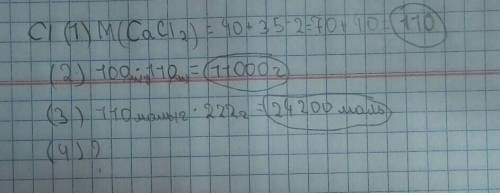 Cl (1) M(CaCl2) = 40 + 35·2 = 70 + 40 = 110
(2) 100 · 110 = 11000г
(3) 110 моль г · 222г = 24200 моль
(4) ?